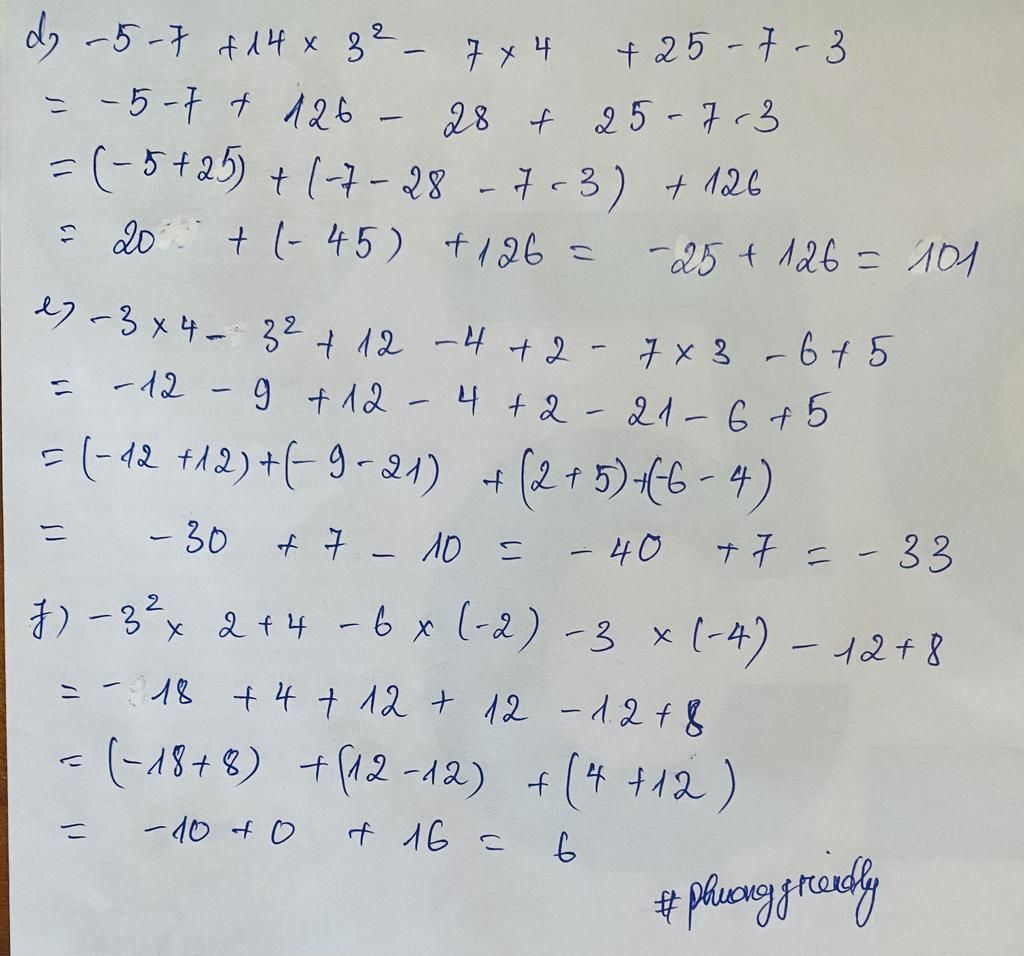 d) -5-7 +14 × 3² - 7 × 4 + 25 - 7 - 3
= -5-7 + 126 - 28 + 25 - 7 - 3
= (-5+25) + (-7-28 - 7-3) + 126
= 20 + (-45) + 126 = -25 + 126 = 101
e) -3 × 4 - 3² + 12 - 4 + 2 - 7 × 3 - 6 + 5
= -12 - 9 + 12 - 4 + 2 - 21 - 6 + 5
= (-12 +12) + (-9-21) + (2+5) + (-6-4)
= -30 + 7 - 10 = -40 + 7 = -33
f) -3² × 2 + 4 - 6 × (-2) - 3 × (-4) - 12 + 8
= -18 + 4 + 12 + 12 - 12 + 8
= (-18+8) + (12-12) + (4 +12)
= -10 + 0 + 16 = 6
#phuongfriendly